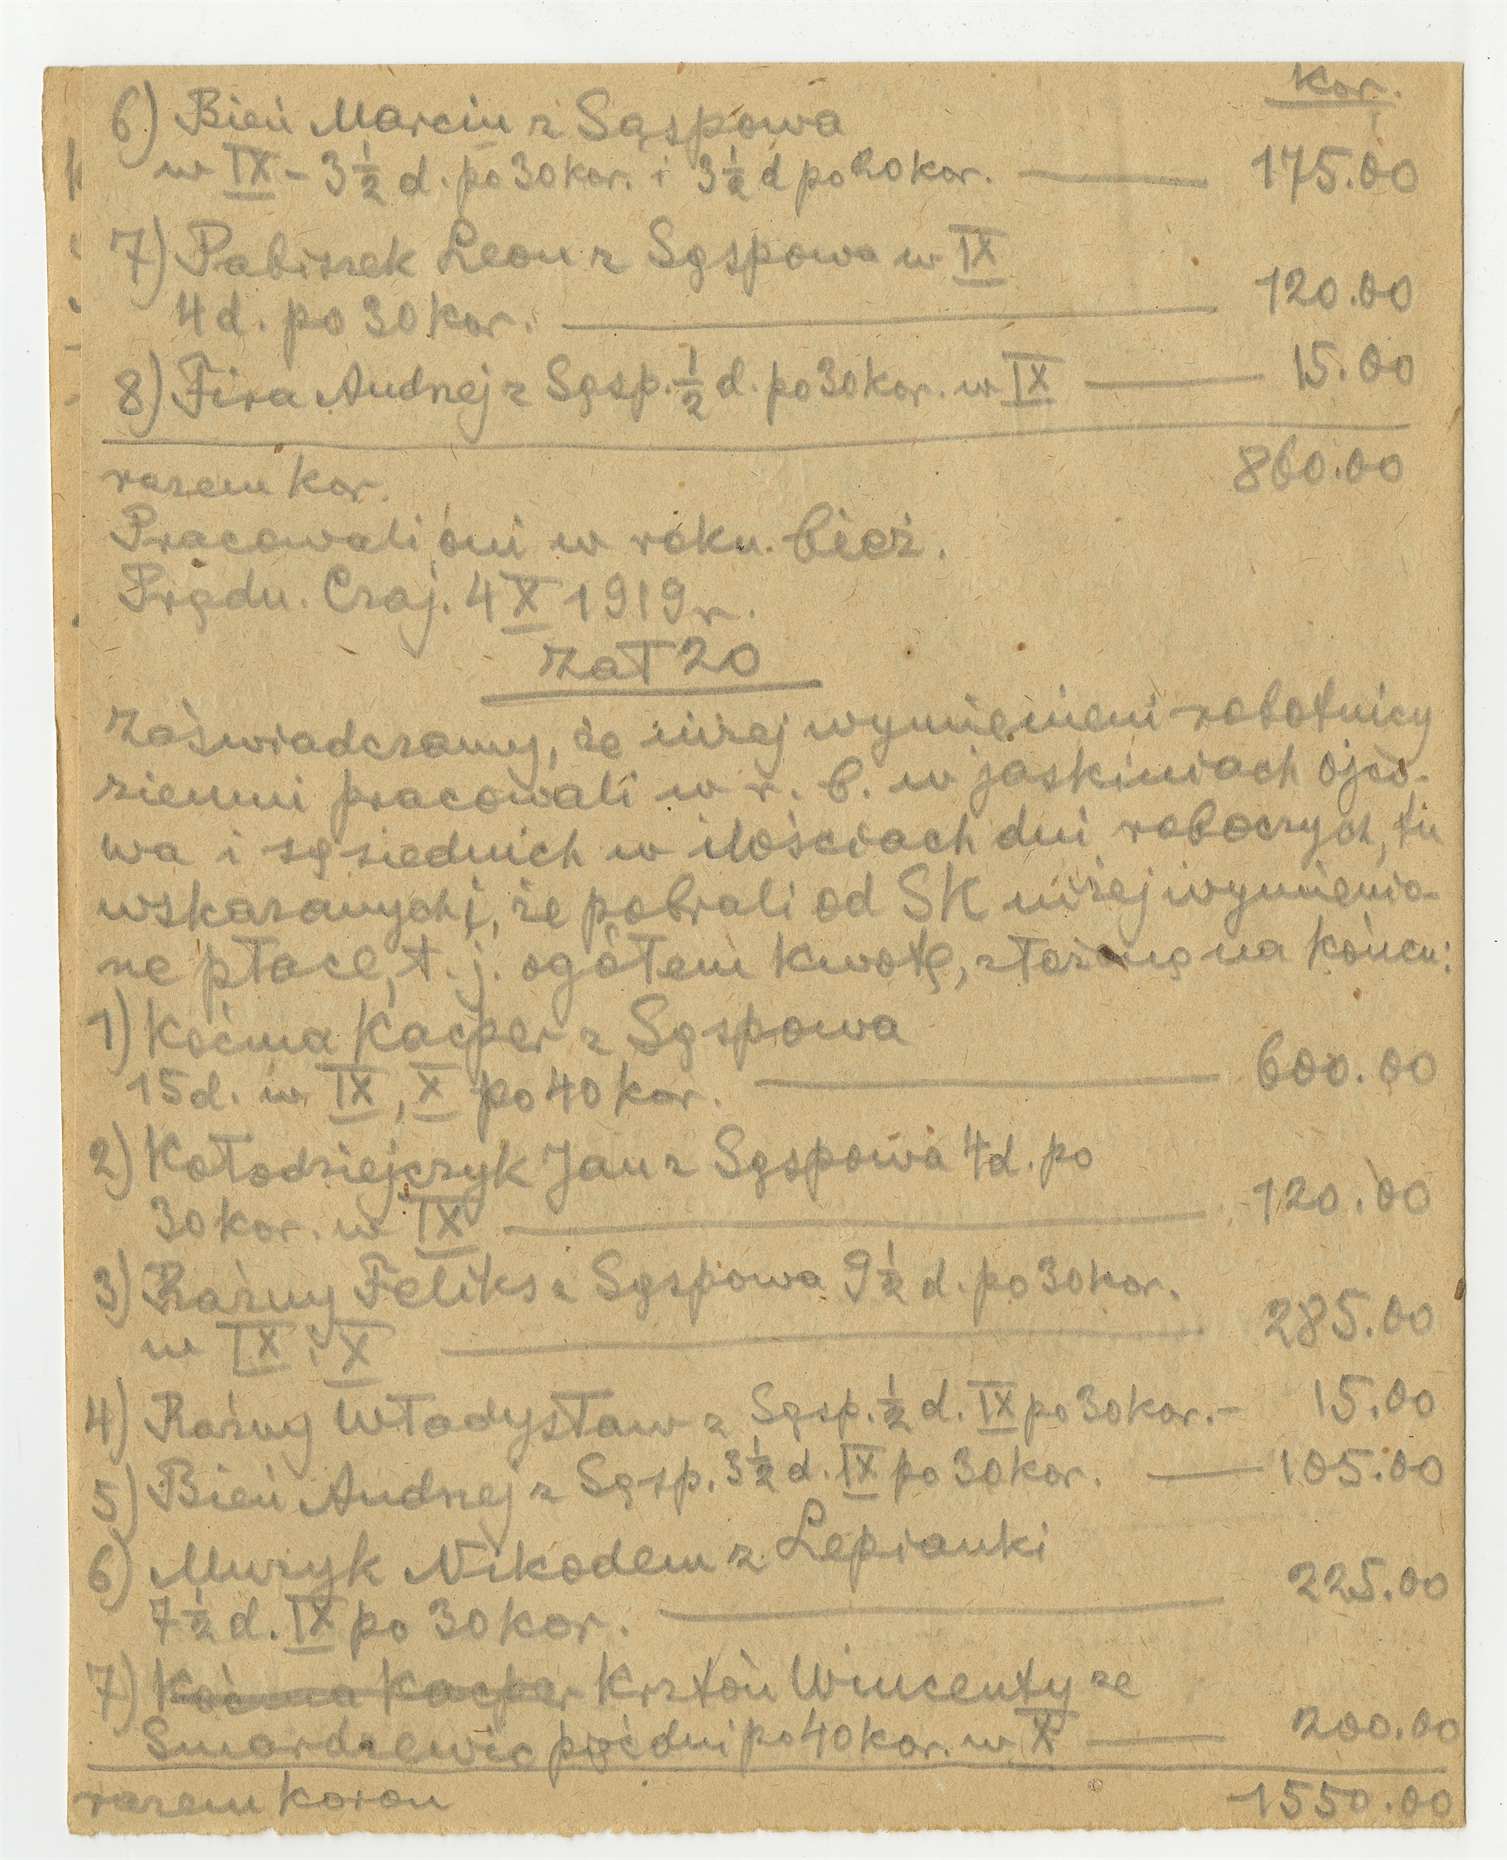 kor.
6) Bień Marcin z Sąspowa
w IX - 3 1/2 d. po 30 kor. i 3 1/2 d po 20 kor. — 175.00
7) Pabiszek Leon z Sąspowa w IX
4 d. po 30 kor. — 120.00
8) Fira Andrzej z Sąsp. 1/2 d. po 30 kor. w IX — 15.00
razem kor. 860.00
Pracowali oni w roku bież.
Prądn. Czaj. 4 X 1919 r.
Zał 20
Zaświadczamy, że niżej wymienieni robotnicy
ziemni pracowali w r. b. w jaskiniach Ojco-
wa i sąsiednich w ilościach dni roboczych, tu
wskazanych i, że pobrali od SK niżej wymienio-
ne płace, t. j. ogółem kwotę, złożoną na końcu:
1) Koćma Kacper z Sąspowa
15 d. w IX, X po 40 kor. — 600.00
2) Kołodziejczyk Jan z Sąspowa 4 d. po
30 kor. w IX — 120.00
3) Rażny Feliks z Sąspowa 9 1/2 d. po 30 kor.
w IX i X — 285.00
4) Rażny Władysław z Sąsp. 1/2 d. IX po 30 kor. - 15.00
5) Bień Andrzej z Sąsp. 3 1/2 d. IX po 30 kor. — 105.00
6) Muzyk Nikodem z Lepianki
7 1/2 d. IX po 30 kor. — 225.00
7) Koćma Kacper Krztoń Wincenty ze
Smardzewic pięć dni po 40 kor. w X — 200.00
razem koron 1550.00